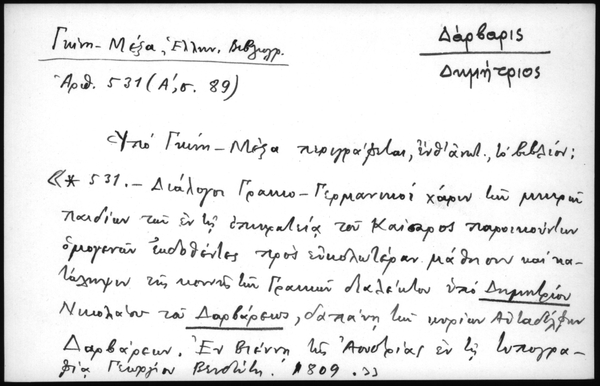 Γκίνη-Μέξα, Ἑλλην. Βιβλιογρ.
Δάρβαρις
Δημήτριος
Ἀριθ. 531 (Α', σ. 89)
Ὑπό Γκίνη-Μέξα περιγράφεται, ἐνθ' ἀνωτ., τό βιβλίον:
«* 531.- Διάλογοι Γραικο-Γερμανικοί χάριν τῶν μικρῶν
παιδίων τῶν ἐν τῇ ἐπικρατείᾳ τοῦ Καίσαρος παροικούντων
ὁμογενῶν ἐκδοθέντες πρός εὐκολωτέραν μάθησιν καί κα-
τάληψιν τῆς κοινῆς τῶν Γραικῶν διαλέκτου ὑπό Δημητρίου
Νικολάου τοῦ Δαρβάρεως, δαπάνῃ τῶν κυρίων Αὐταδέλφων
Δαρβάρεων. Ἐν Βιέννῃ τῆς Αουστρίας ἐν τῇ τυπογρα-
φίᾳ Γεωργίου Βενδότη. 1809.»